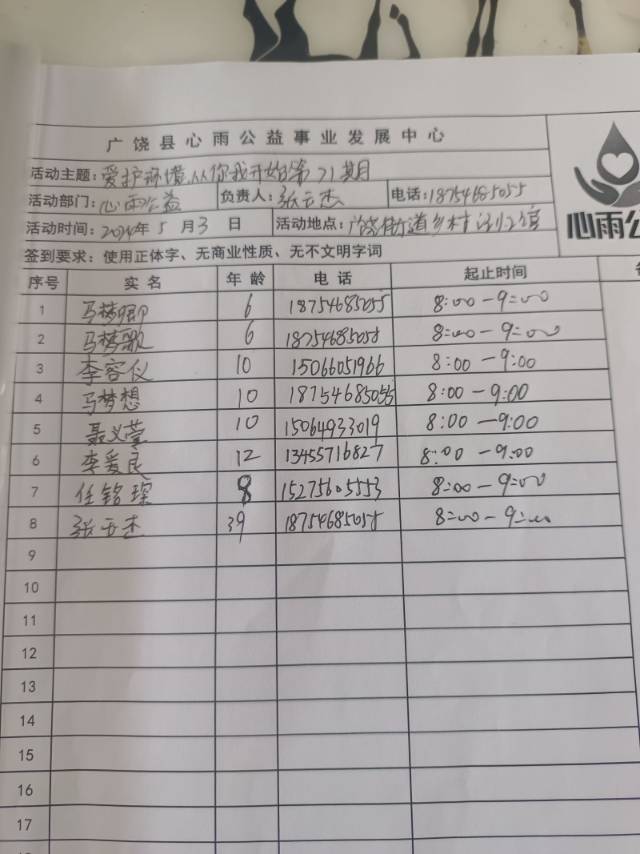 广饶县心雨公益事业发展中心
活动主题: 爱护环境从你我开始第21期
活动部门: 心雨公益 负责人: 张云杰 电话: 18754685055
活动时间: 2024年 5 月 3 日 活动地点: 广饶街道乡村记忆馆
心雨公
签到要求: 使用正体字、无商业性质、无不文明字词
序号 实名 年龄 电话 起止时间
1 马梦卿 6 18754685055 8:00-9:00
2 马梦歌 6 18754685055 8:00-9:00
3 李容仪 10 15066051966 8:00-9:00
4 马梦想 10 18754685055 8:00-9:00
5 聂义萱 10 15064933019 8:00-9:00
6 李爱良 12 13455716827 8:00-9:00
7 任铭琛 8 15275605553 8:00-9:00
8 张云杰 39 18754685055 8:00-9:00
9
10
11
12
13
14
15
16
17